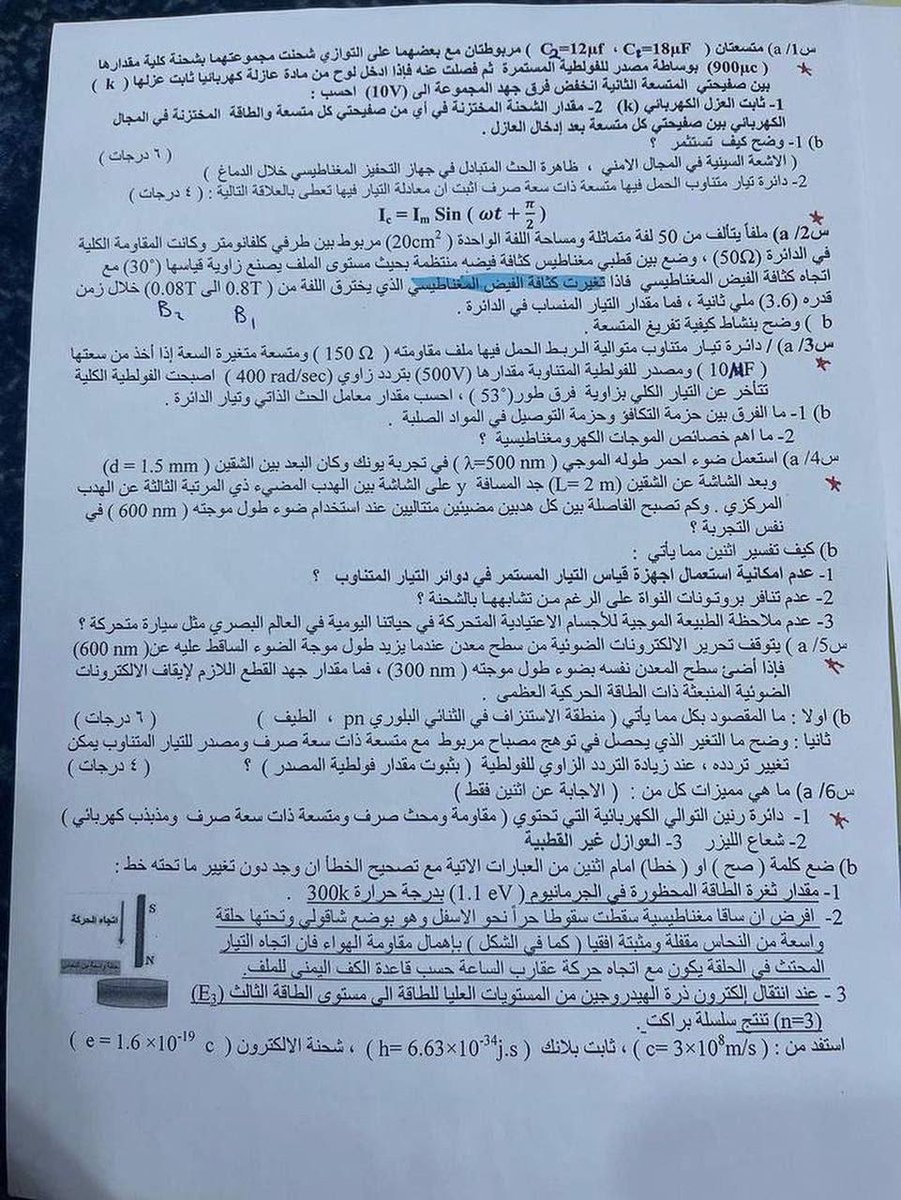 س1/ a) متسعتان ( C₁=18µF ، C₂=12µf ) مربوطتان مع بعضهما على التوازي شحنت مجموعتهما بشحنة كلية مقدارها
( 900µc) بوساطة مصدر للفولطية المستمرة ثم فصلت عنه فإذا ادخل لوح من مادة عازلة كهربائيا ثابت عزلها ( k )
بين صفيحتي المتسعة الثانية انخفض فرق جهد المجموعة الى (10V) احسب :
1- ثابت العزل الكهربائي (k) 2- مقدار الشحنة المختزنة في أي من صفيحتي كل متسعة والطاقة المختزنة في المجال
الكهربائي بين صفيحتي كل متسعة بعد إدخال العازل .
b) 1- وضح كيف تستثمر ؟ ( ٦ درجات )
( الاشعة السينية في المجال الامني ، ظاهرة الحث المتبادل في جهاز التحفيز المغناطيسي خلال الدماغ )
2- دائرة تيار متناوب الحمل فيها متسعة ذات سعة صرف اثبت ان معادلة التيار فيها تعطى بالعلاقة التالية : ( ٤ درجات )
I_c = I_m Sin ( ωt + π/2 )
س2/ a) ملفاً يتألف من 50 لفة متماثلة ومساحة اللفة الواحدة ( 20cm²) مربوط بين طرفي كلفانومتر وكانت المقاومة الكلية
في الدائرة (50Ω) ، وضع بين قطبي مغناطيس كثافة فيضه منتظمة بحيث مستوى الملف يصنع زاوية قياسها (30°) مع
اتجاه كثافة الفيض المغناطيسي فاذا تغيرت كثافة الفيض المغناطيسي الذي يخترق اللفة من ( 0.8T الى 0.08T) خلال زمن
قدره (3.6) ملي ثانية ، فما مقدار التيار المنساب في الدائرة .
B₁ B₂
b ) وضح بنشاط كيفية تفريغ المتسعة .
س3/ a) / دائرة تيار متناوب متوالية الربط الحمل فيها ملف مقاومته ( 150 Ω ) ومتسعة متغيرة السعة إذا أخذ من سعتها
( 10µF ) ومصدر للفولطية المتناوبة مقدارها (500V) بتردد زاوي ( 400 rad/sec) اصبحت الفولطية الكلية
تتأخر عن التيار الكلي بزاوية فرق طور( 53°) ، احسب مقدار معامل الحث الذاتي وتيار الدائرة .
b) 1- ما الفرق بين حزمة التكافؤ وحزمة التوصيل في المواد الصلبة .
2- ما اهم خصائص الموجات الكهرومغناطيسية ؟
س4/ a) استعمل ضوء احمر طوله الموجي ( λ=500 nm) في تجربة يونك وكان البعد بين الشقين ( d = 1.5 mm)
وبعد الشاشة عن الشقين (L= 2 m) جد المسافة y على الشاشة بين الهدب المضيء ذي المرتبة الثالثة عن الهدب
المركزي . وكم تصبح الفاصلة بين كل هدبين مضيئين متتاليين عند استخدام ضوء طول موجته ( 600 nm ) في
نفس التجربة ؟
b) كيف تفسير اثنين مما يأتي :
1- عدم امكانية استعمال اجهزة قياس التيار المستمر في دوائر التيار المتناوب ؟
2- عدم تنافر بروتونات النواة على الرغم من تشابهها بالشحنة ؟
3- عدم ملاحظة الطبيعة الموجية للأجسام الاعتيادية المتحركة في حياتنا اليومية في العالم البصري مثل سيارة متحركة ؟
س5/ a ) يتوقف تحرير الالكترونات الضوئية من سطح معدن عندما يزيد طول موجة الضوء الساقط عليه عن( 600 nm)
فإذا أضئ سطح المعدن نفسه بضوء طول موجته ( 300 nm) ، فما مقدار جهد القطع اللازم لإيقاف الالكترونات
الضوئية المنبعثة ذات الطاقة الحركية العظمى .
b) اولا : ما المقصود بكل مما يأتي ( منطقة الاستنزاف في الثنائي البلوري pn ، الطيف ) ( ٦ درجات )
ثانيا : وضح ما التغير الذي يحصل في توهج مصباح مربوط مع متسعة ذات سعة صرف ومصدر للتيار المتناوب يمكن
تغيير تردده ، عند زيادة التردد الزاوي للفولطية ( بثبوت مقدار فولطية المصدر ) ؟ ( ٤ درجات )
س6/ a) ما هي مميزات كل من : ( الاجابة عن اثنين فقط )
1- دائرة رنين التوالي الكهربائية التي تحتوي ( مقاومة ومحث صرف ومتسعة ذات سعة صرف ومذبذب كهربائي )
2- شعاع الليزر 3- العوازل غير القطبية
b) ضع كلمة ( صح ) او ( خطا) امام اثنين من العبارات الاتية مع تصحيح الخطأ ان وجد دون تغيير ما تحته خط :
1- مقدار ثغرة الطاقة المحظورة في الجرمانيوم ( 1.1 eV) بدرجة حرارة 300k .
2- افرض ان ساقا مغناطيسية سقطت سقوطا حراً نحو الاسفل وهو بوضع شاقولي وتحتها حلقة
واسعة من النحاس مقفلة ومثبتة افقيا ( كما في الشكل ) بإهمال مقاومة الهواء فان اتجاه التيار
المحتث في الحلقة يكون مع اتجاه حركة عقارب الساعة حسب قاعدة الكف اليمنى للملف.
S
اتجاه الحركة
N
حلقة واسعة من النحاس
3 - عند انتقال إلكترون ذرة الهيدروجين من المستويات العليا للطاقة الى مستوى الطاقة الثالث (E₃)
(n=3) تنتج سلسلة براكت.
استفد من : ( c= 3×10⁸m/s ) ، ثابت بلانك ( h= 6.63×10⁻³⁴j.s ) ، شحنة الالكترون ( e = 1.6 ×10⁻¹⁹ c )